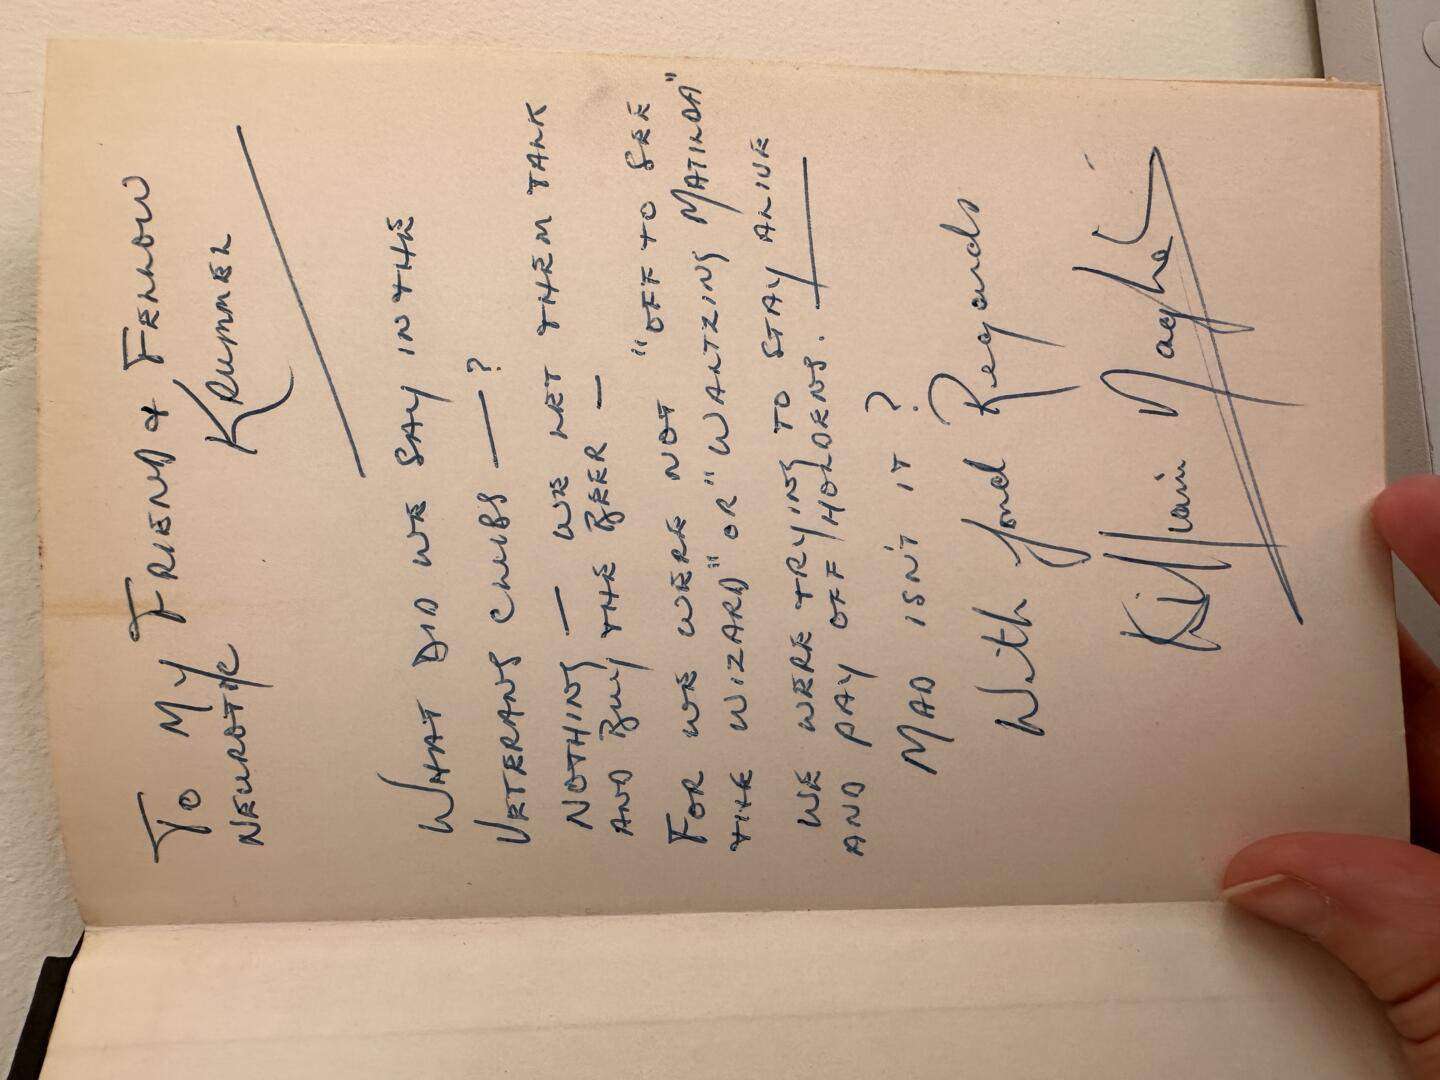 TO MY FRIEND & FELLOW
NEUROTIC KRUMMEL
WHAT DID WE SAY IN THE
VETERANS CLUBS — ?
NOTHING — WE LET THEM TALK
AND BUY THE BEER —
FOR WE WERE NOT "OFF TO SEE
THE WIZARD" OR "WALTZING MATILDA"
WE WERE TRYING TO STAY ALIVE
AND PAY OFF HOLDENS.
MAD ISN'T IT ?
With fond Regards
Killian